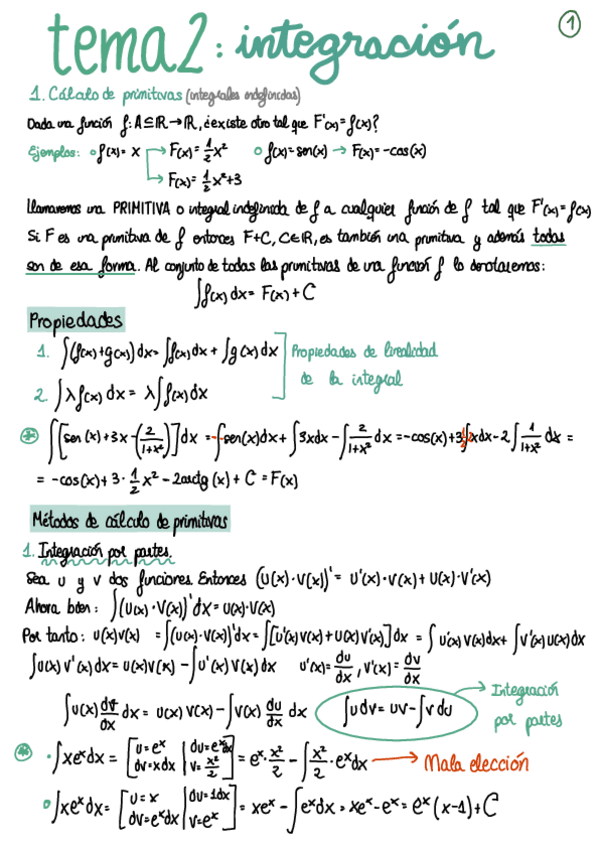 tema 2: integración
1
1. Cálculo de primitivas (integrales indefinidas)
Dada una función f: A⊆ℝ→ℝ, ¿existe otro tal que F'(x) = f(x)?
Ejemplos: ○ f(x) = x → F(x) = 1/2 x² ○ f(x) = sen(x) → F(x) = -cos(x)
→ F(x) = 1/2 x² + 3
Llamaremos una PRIMITIVA o integral indefinida de f a cualquier función de f tal que F'(x) = f(x)
Si F es una primitiva de f entonces F+C, C∈ℝ, es también una primitiva y además todas
son de esa forma. Al conjunto de todas las primitivas de una función f lo denotaremos:
∫f(x) dx = F(x) + C
Propiedades
1. ∫(f(x)+g(x)) dx = ∫f(x) dx + ∫g(x) dx
Propiedades de linealidad
2. ∫λ f(x) dx = λ ∫f(x) dx
de la integral
* ∫[sen(x) + 3x - (2/(1+x²))] dx = -∫sen(x)dx + ∫3xdx - ∫ 2/(1+x²) dx = -cos(x) + 3∫xdx - 2∫ 1/(1+x²) dx =
= -cos(x) + 3 · 1/2 x² - 2arctg(x) + C = F(x)
Métodos de cálculo de primitivas
1. Integración por partes.
Sea u y v dos funciones. Entonces (u(x)·v(x))' = u'(x)·v(x) + u(x)·v'(x)
Ahora bien: ∫(u(x)·v(x))' dx = u(x)·v(x)
Por tanto: u(x)v(x) = ∫(u(x)·v(x))' dx = ∫[u'(x)v(x) + u(x)v'(x)] dx = ∫u'(x)v(x)dx + ∫v'(x)u(x)dx
∫u(x) v'(x) dx = u(x)v(x) - ∫u'(x) v(x) dx u'(x) = du/dx, v'(x) = dv/dx
∫u(x) dv/dx dx = u(x) v(x) - ∫v(x) du/dx dx ∫u dv = uv - ∫v du → Integración
por partes
* · ∫xeˣ dx = [u = eˣ | du = eˣ dx, dv = x dx | v = x²/2] = eˣ · x²/2 - ∫ x²/2 · eˣ dx → Mala elección
○ ∫xeˣ dx = [u = x | du = 1dx, dv = eˣ dx | v = eˣ] = xeˣ - ∫eˣ dx = xeˣ - eˣ = eˣ (x-1) + C